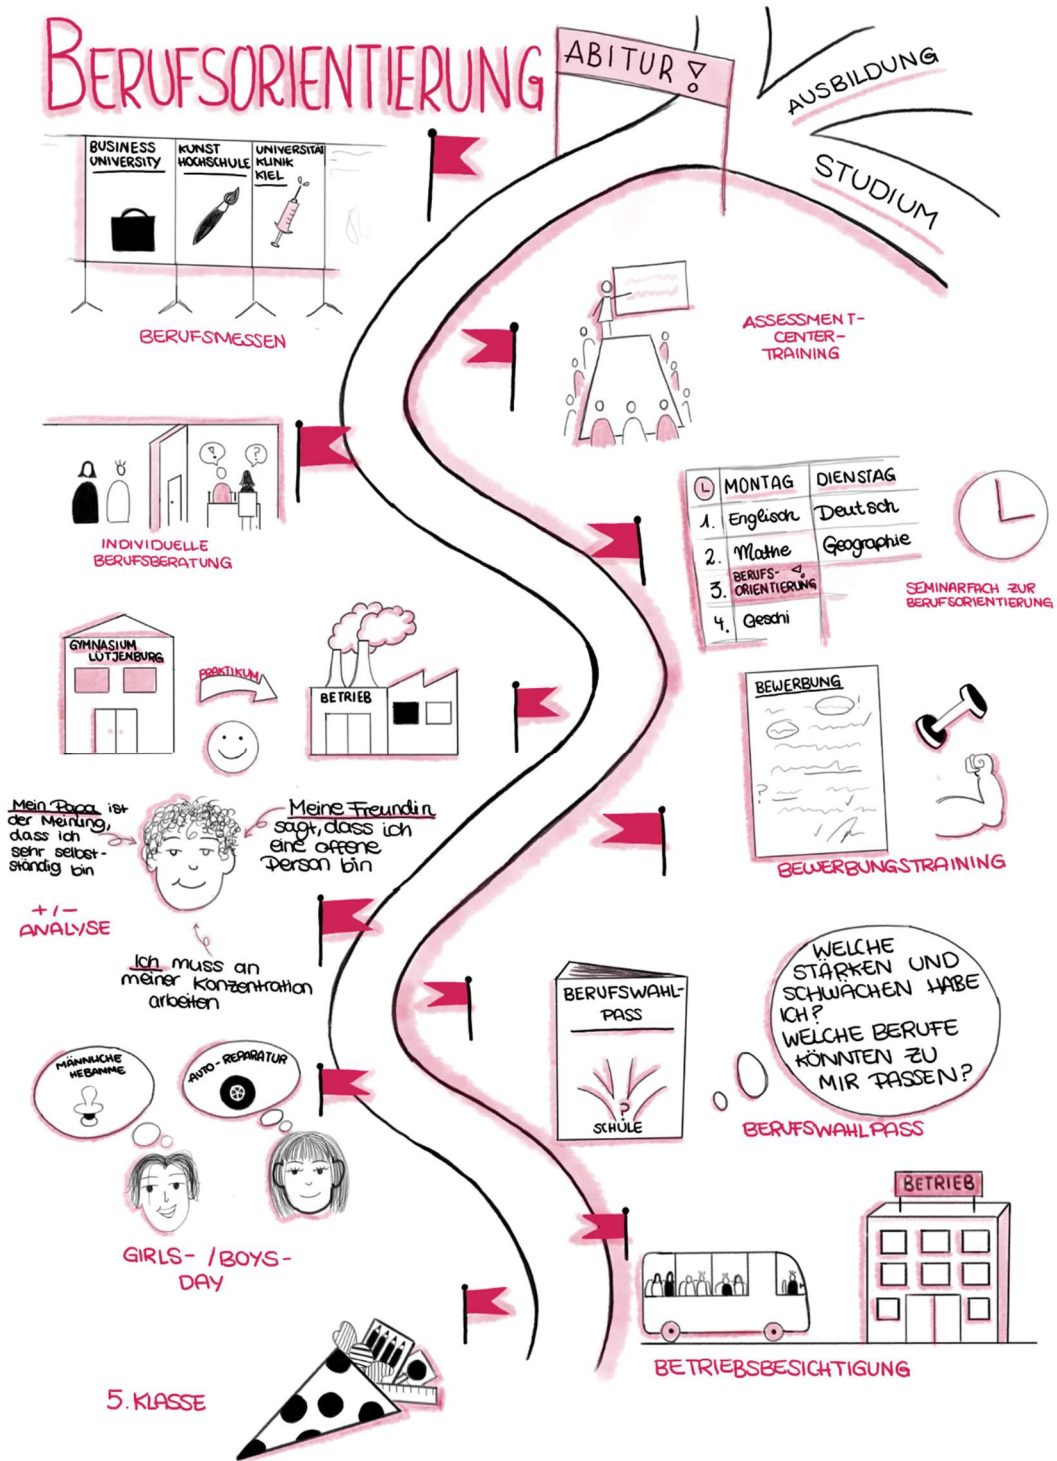 BERUFSORIENTIERUNG
ABITUR!
AUSBILDUNG
STUDIUM
BUSINESS
UNIVERSITY
KUNST
HOCHSCHULE
UNIVERSITÄT
KLINIK
KIEL
BERUFSMESSEN
ASSESSMENT-
CENTER-
TRAINING
!
?
INDIVIDUELLE
BERUFSBERATUNG
MONTAG DIENSTAG
1. Englisch Deutsch
2. Mathe Geographie
3. BERUFS-
ORIENTIERUNG !
4. Geschi
SEMINARFACH ZUR
BERUFSORIENTIERUNG
GYMNASIUM
LÜTJENBURG
PRAKTIKUM
BETRIEB
BEWERBUNG
?
BEWERBUNGSTRAINING
Mein Papa ist
der Meinung,
dass ich
sehr selbst-
ständig bin
Meine Freundin
sagt, dass ich
eine offene
Person bin
+/-
ANALYSE
Ich muss an
meiner Konzentration
arbeiten
BERUFSWAHL-
PASS
?
SCHULE
WELCHE
STÄRKEN UND
SCHWÄCHEN HABE
ICH?
WELCHE BERUFE
KÖNNTEN ZU
MIR PASSEN?
BERUFSWAHLPASS
MÄNNLICHE
HEBAMME
AUTO-REPARATUR
GIRLS- /BOYS-
DAY
BETRIEB
BETRIEBSBESICHTIGUNG
5. KLASSE